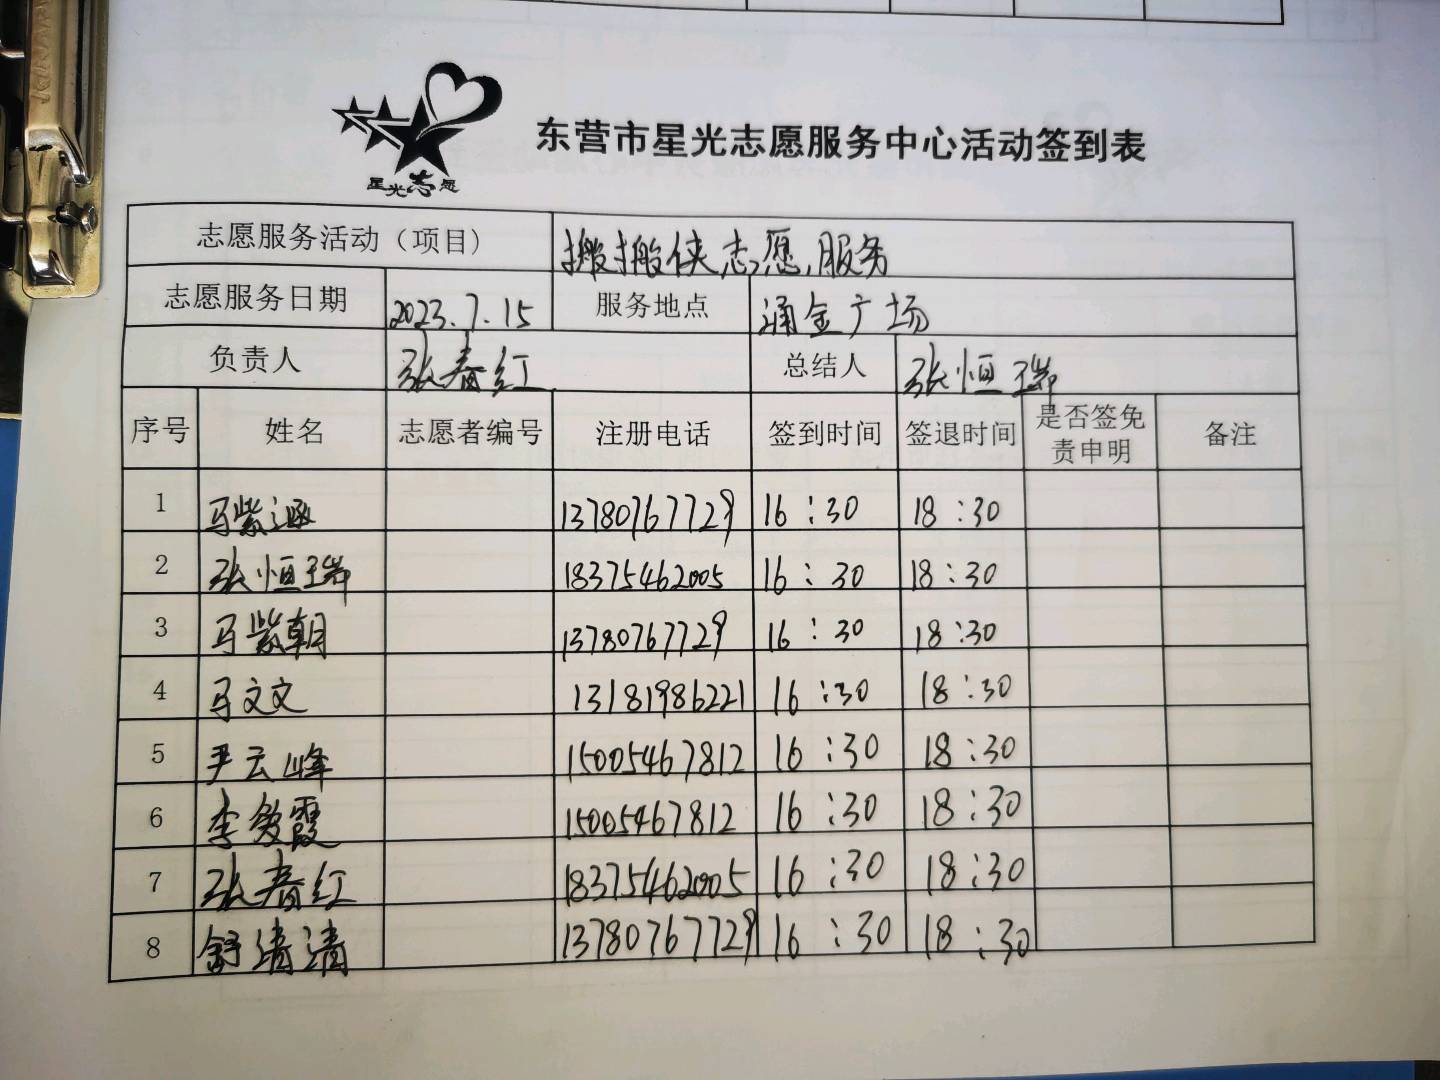 星光志愿
东营市星光志愿服务中心活动签到表
志愿服务活动（项目） 搬搬侠志愿服务
志愿服务日期 2023.7.15 服务地点 涌金广场
负责人 张春红 总结人 张恒瑞
序号 姓名 志愿者编号 注册电话 签到时间 签退时间 是否签免责申明 备注
1 马紫涵 13780767729 16:30 18:30
2 张恒瑞 18375462005 16:30 18:30
3 马紫朝 13780767729 16:30 18:30
4 马文文 13181986221 16:30 18:30
5 尹云峰 15005467812 16:30 18:30
6 李爱霞 15005467812 16:30 18:30
7 张春红 18375462005 16:30 18:30
8 舒清清 13780767729 16:30 18:30